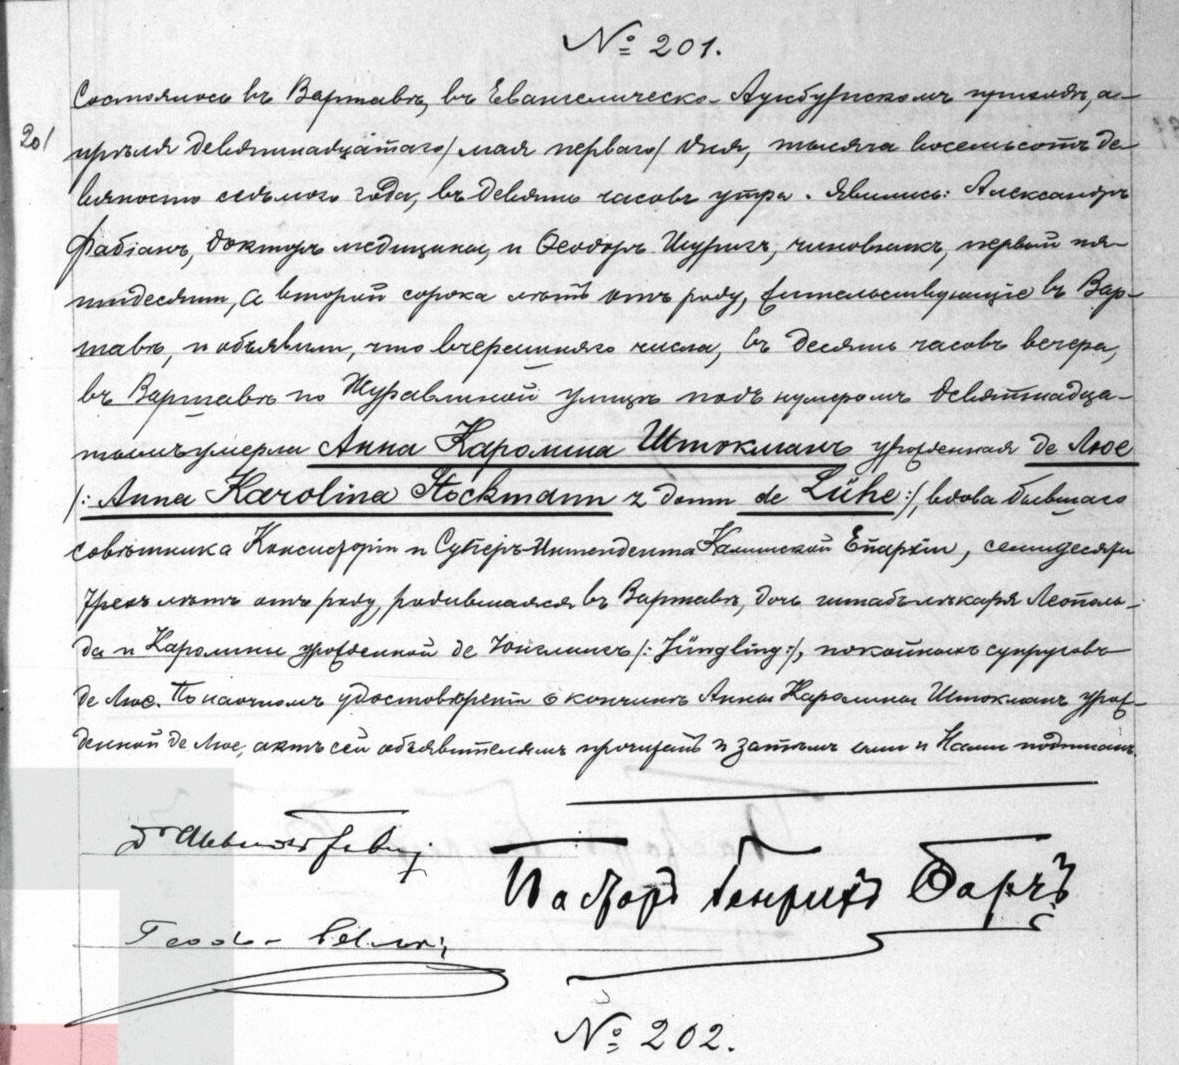 № 201.
Состоялось въ Варшавѣ, въ Евангелическо-Аугсбургскомъ приходѣ, а-
201
прѣля девятнадцатаго /мая перваго/ дня, тысяча восемьсотъ де-
вяносто седьмого года, въ девять часовъ утра. Явились: Александръ
Фабіанъ, докторъ медицины, и Ѳеодоръ Шуригъ, чиновникъ, первый пя-
тидесяти, а второй сорока лѣтъ отъ роду, жительствующіе въ Вар-
шавѣ, и объявили, что вчерашняго числа, въ десять часовъ вечера,
въ Варшавѣ по Журавлиной улицѣ подъ нумеромъ девятнадца-
тымъ умерла Анна Каролина Штокманъ урожденная де Люе
/: Anna Karolina Stockmann z domu de Lühe:/, вдова бывшаго
совѣтника Консисторіи и Суперъ-Интендента Калишской Епархіи, семидесяти
трехъ лѣтъ отъ роду, родившаяся въ Варшавѣ, дочь штабълѣкаря Леополь-
да и Каролины урожденной де Юнглингъ /: Jüngling:/, покойныхъ супруговъ
де Люе. По наочномъ удостовѣреніи о кончинѣ Анны Каролины Штокманъ урож-
денной де Люе, актъ сей объявителямъ прочитанъ и затѣмъ ими и Нами подписанъ.
Пасторъ Генрихъ
Teodor
№ 202.